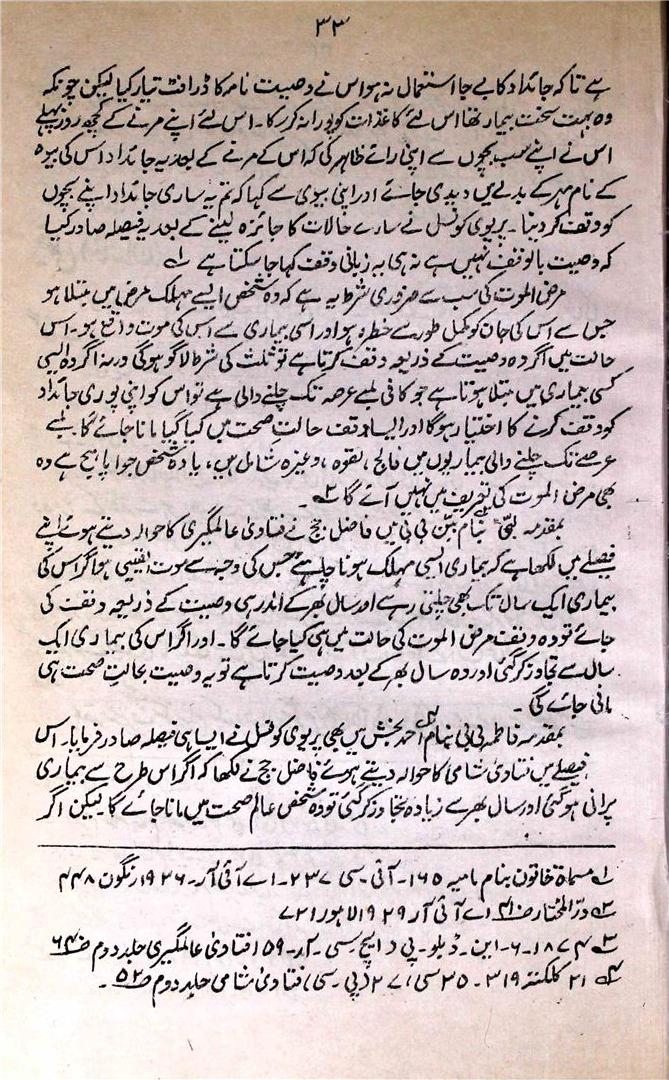 ۳۳
ہے تاکہ جائداد کا بے جا استعمال نہ ہو اس نے وصیت نامہ کا ڈرافٹ تیار کیا لیکن چونکہ
وہ بہت سخت بیمار تھا اس لئے کاغذات کو پورا نہ کر سکا۔ اس لئے اپنے مرنے کے کچھ روز پہلے
اس نے اپنے سب بچوں سے اپنی رائے ظاہر کی کہ اس کے مرنے کے بعد یہ جائداد اس کی بیوہ
کے نام مہر کے بدلے میں دیدی جائے اور اپنی بیوی سے کہا کہ تم یہ ساری جائداد اپنے بچوں
کو وقف کر دینا۔ پریوی کونسل نے سارے حالات کا جائزہ لینے کے بعد یہ فیصلہ صادر کیا
کہ وصیت بالوقف نہیں ہے نہ ہی یہ زبانی وقف کہا جا سکتا ہے ۱؎
مرض الموت کی سب سے ضروری شرط یہ ہے کہ وہ شخص ایسے مہلک مرض میں مبتلا ہو
جس سے اس کی جان کو مکمل طور سے خطرہ ہو اور اسی بیماری سے اس کی موت واقع ہو۔ اس
حالت میں اگر وہ وصیت کے ذریعہ وقف کرتا ہے تو ثلث کی شرط لاگو ہوگی ورنہ اگر وہ ایسی
کسی بیماری میں مبتلا ہوتا ہے جو کافی لمبے عرصہ تک چلنے والی ہے تو اس کو اپنی پوری جائداد
کو وقف کرنے کا اختیار ہوگا اور ایسا وقف حالت صحت میں کیا گیا مانا جائے گا۔ لمبے
عرصے تک چلنے والی بیماریوں میں فالج، لقوہ، وغیرہ شامل ہیں، یا وہ شخص جو اپاہج ہے وہ
بھی مرض الموت کی تعریف میں نہیں آئے گا ۲؎۔
بمقدمہ لبّی بنام ببّن بی بی میں فاضل جج نے فتاویٰ عالمگیری کا حوالہ دیتے ہوئے اپنے
فیصلے میں لکھا ہے کہ بیماری ایسی مہلک ہونا چاہیے جس کی وجہ سے موت یقینی ہو اگر اس کی
بیماری ایک سال تک بھی چلتی رہے اور سال بھر کے اندر ہی وصیت کے ذریعہ وقف کی
جائے تو وہ وقف مرض الموت کی حالت میں ہی کیا جائے گا۔ اور اگر اس کی بیماری ایک
سال سے تجاوز کر گئی اور وہ سال بھر کے بعد وصیت کرتا ہے تو یہ وصیت بحالتِ صحت ہی
مانی جائے گی۔
بمقدمہ فاطمہ بی بی بنام احمد بخش ۴؎ میں بھی پریوی کونسل نے ایسا ہی فیصلہ صادر فرمایا۔ اس
فیصلے میں فتاویٰ شامی کا حوالہ دیتے ہوئے فاضل جج نے لکھا کہ اگر اس طرح سے بیماری
پرانی ہو گئی اور سال بھر سے زیادہ تجاوز کر گئی تو وہ شخص عالم صحت میں مانا جائے گا لیکن اگر
۱؎ مسماۃ خاتون بنام مامیہ ۱۶۵۔ آئی۔ سی ۲۳۷۔ اے آئی آر۔ ۱۹۳۶ رنگون ۴۴۸
۲؎ درّ المختار ص۴۱ اے آئی آر ۱۹۲۹ لاہور ۷۲۱
۳؎ ۱۸۷۴۔۶۔ این۔ ڈبلو۔ پی د ایچ۔ سی۔ آر۔ ۱۵۹ فتاویٰ عالمگیری جلد دوم ص۶۴
۴؎ ۲۱ کلکتہ ۳۱۹۔ ۳۵ سی، ۲۷ (پی۔ سی) فتاویٰ شامی جلد دوم ص۵۲۔